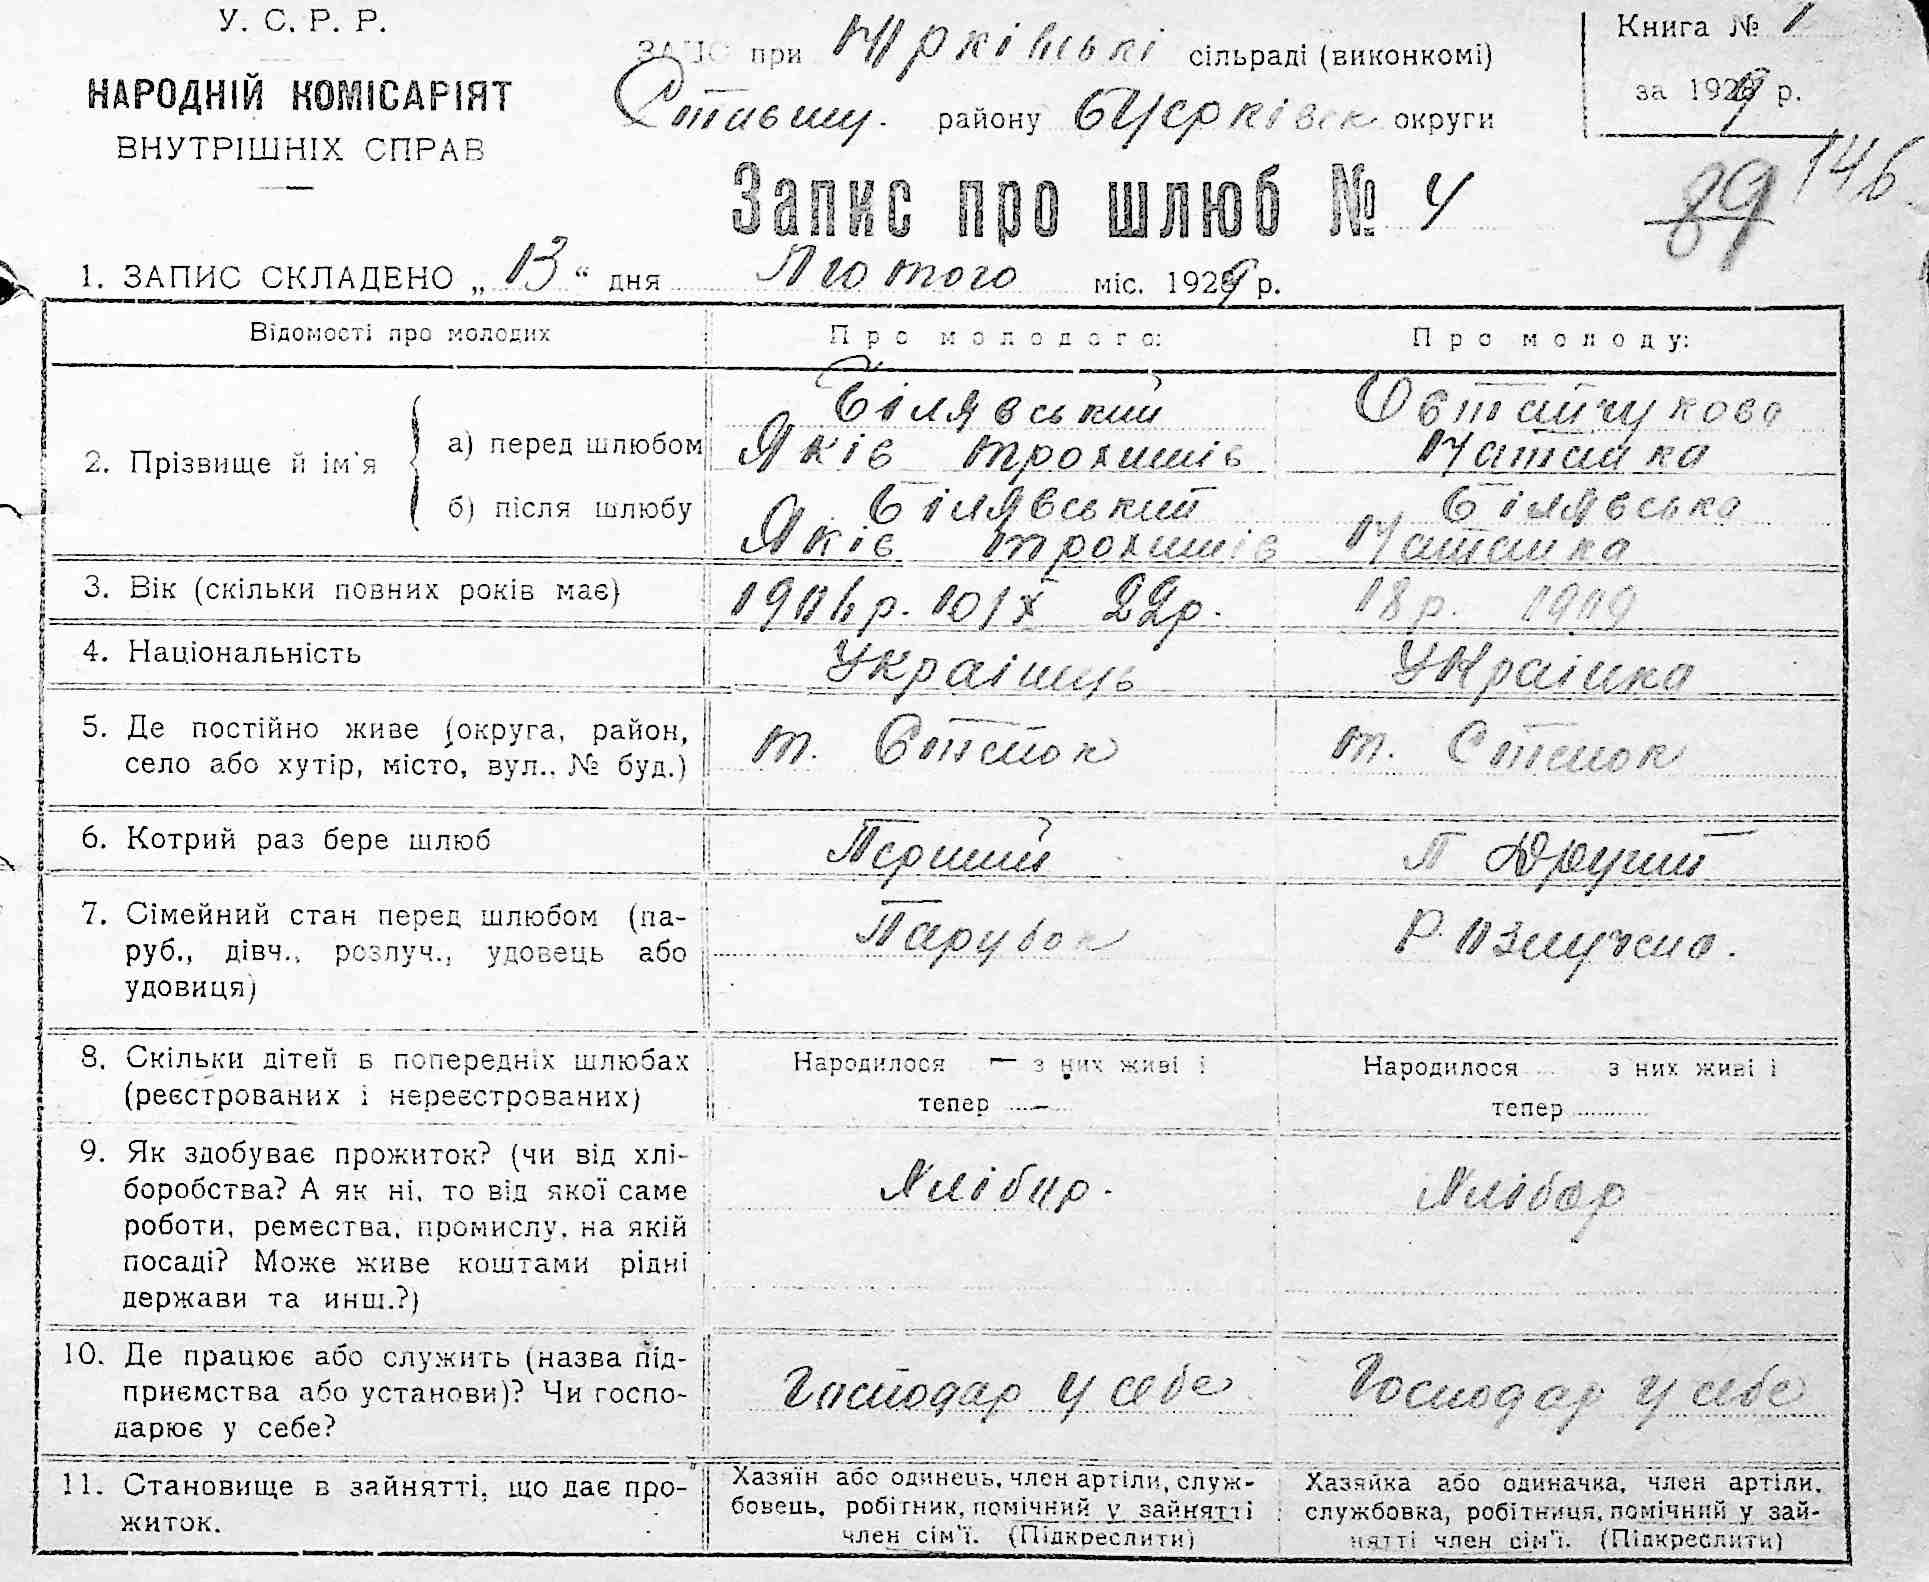 У. С. Р. Р.
НАРОДНІЙ КОМІСАРІЯТ
ВНУТРІШНІХ СПРАВ
ЗАГС при Юрківські сільраді (виконкомі)
Ставищ. району БЦерківськ округи
Книга № 1
за 1929 р.
146
89
Запис про шлюб № 4
1. ЗАПИС СКЛАДЕНО „ 13 “ дня Лютого міс. 1929 р.
Відомості про молодих
Про молодого:
Про молоду:
2. Прізвище й ім'я
а) перед шлюбом
Білявський
Яків Трохимів
Наталка
б) після шлюбу
Білявський
Яків Трохимів
Білявська
Наталка
3. Вік (скільки повних років має)
1906 р. 10/X 22 р.
18 р. 1909
4. Національність
Украінець
Украінка
5. Де постійно живе (округа, район,
село або хутір, місто, вул., № буд.)
т. Стенок
т. Стенок
6. Котрий раз бере шлюб
Перший
П Другий
7. Сімейний стан перед шлюбом (па-
руб., дівч., розлуч., удовець або
удовиця)
Парубок
Розлучена.
8. Скільки дітей в попередніх шлюбах
(реєстрованих і нереєстрованих)
Народилося — з них живі і
тепер —
Народилося з них живі і
тепер
9. Як здобуває прожиток? (чи від хлі-
боробства? А як ні, то від якої саме
роботи, ремества, промислу, на якій
посаді? Може живе коштами рідні
держави та инш.?)
Хлібор.
Хлібор
10. Де працює або служить (назва під-
приємства або установи)? Чи госпо-
дарює у себе?
Господар у себе
Господар у себе
11. Становище в зайнятті, що дає про-
житок.
Хазяїн або одинець, член артіли, служ-
бовець, робітник, помічний у зайнятті
член сім'ї. (Підкреслити)
Хазяйка або одиначка, член артіли,
службовка, робітниця, помічний у зай-
нятті член сім'ї. (Підкреслити)